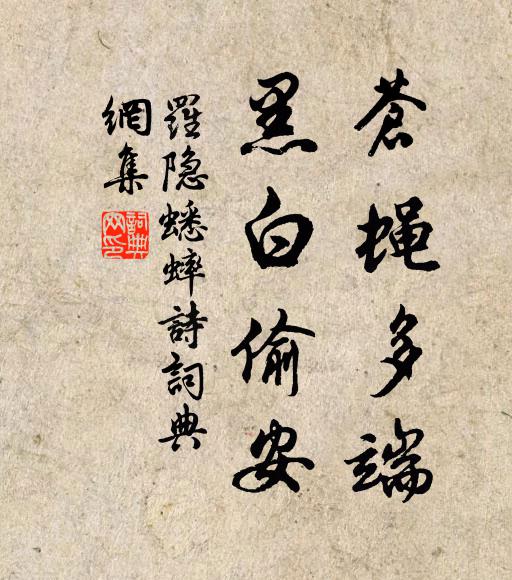 苍蝇多端
黑白偷安
羅隐蟋蟀詩詞典
網集
詞典
网印